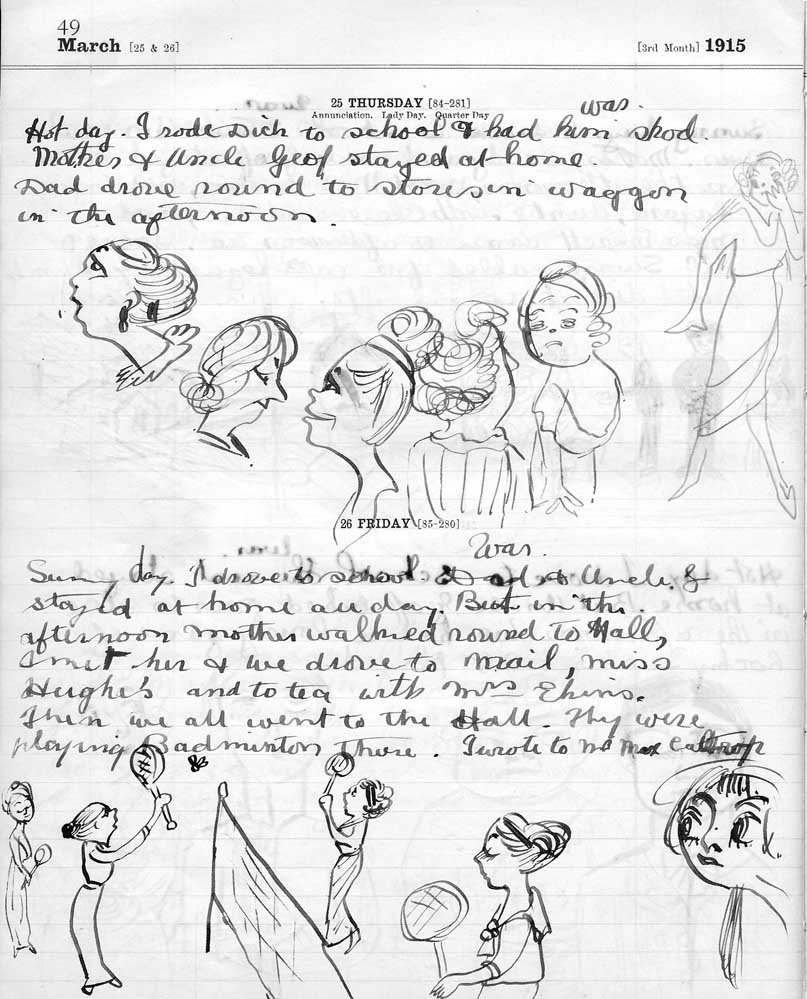 49
March [25 & 26]
[3rd Month] 1915
25 THURSDAY [84-281]
Annunciation. Lady Day. Quarter Day
was.
Hot day. I rode Dick to school & had him shod.
Mother & Uncle Geof stayed at home.
Dad drove round to stores in waggon
in the afternoon.
26 FRIDAY [85-280]
War.
Sunny day. I drove to school. Dad & Uncle. G
stayed at home all day. But in the
afternoon mother walked round to Hall,
I met her & we drove to mail, miss
Hughe's and to tea with Mrs Ekins.
Then we all went to the Hall. They were
playing Badminton there. I wrote to